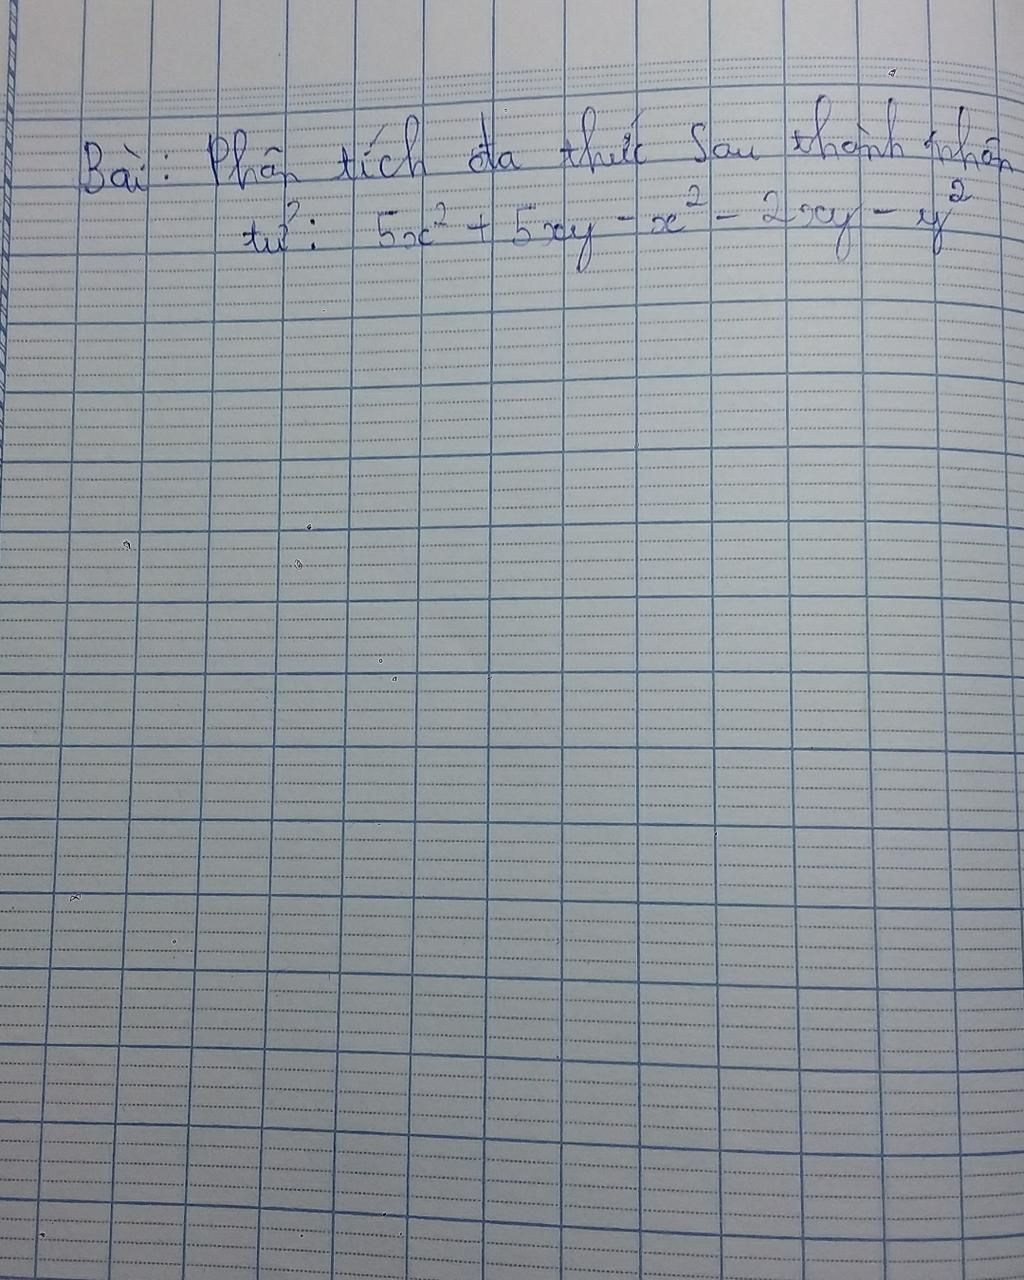 Bài: Phân tích đa thức sau thành nhân
tử: 5x² + 5xy - x² - 2xy - y²